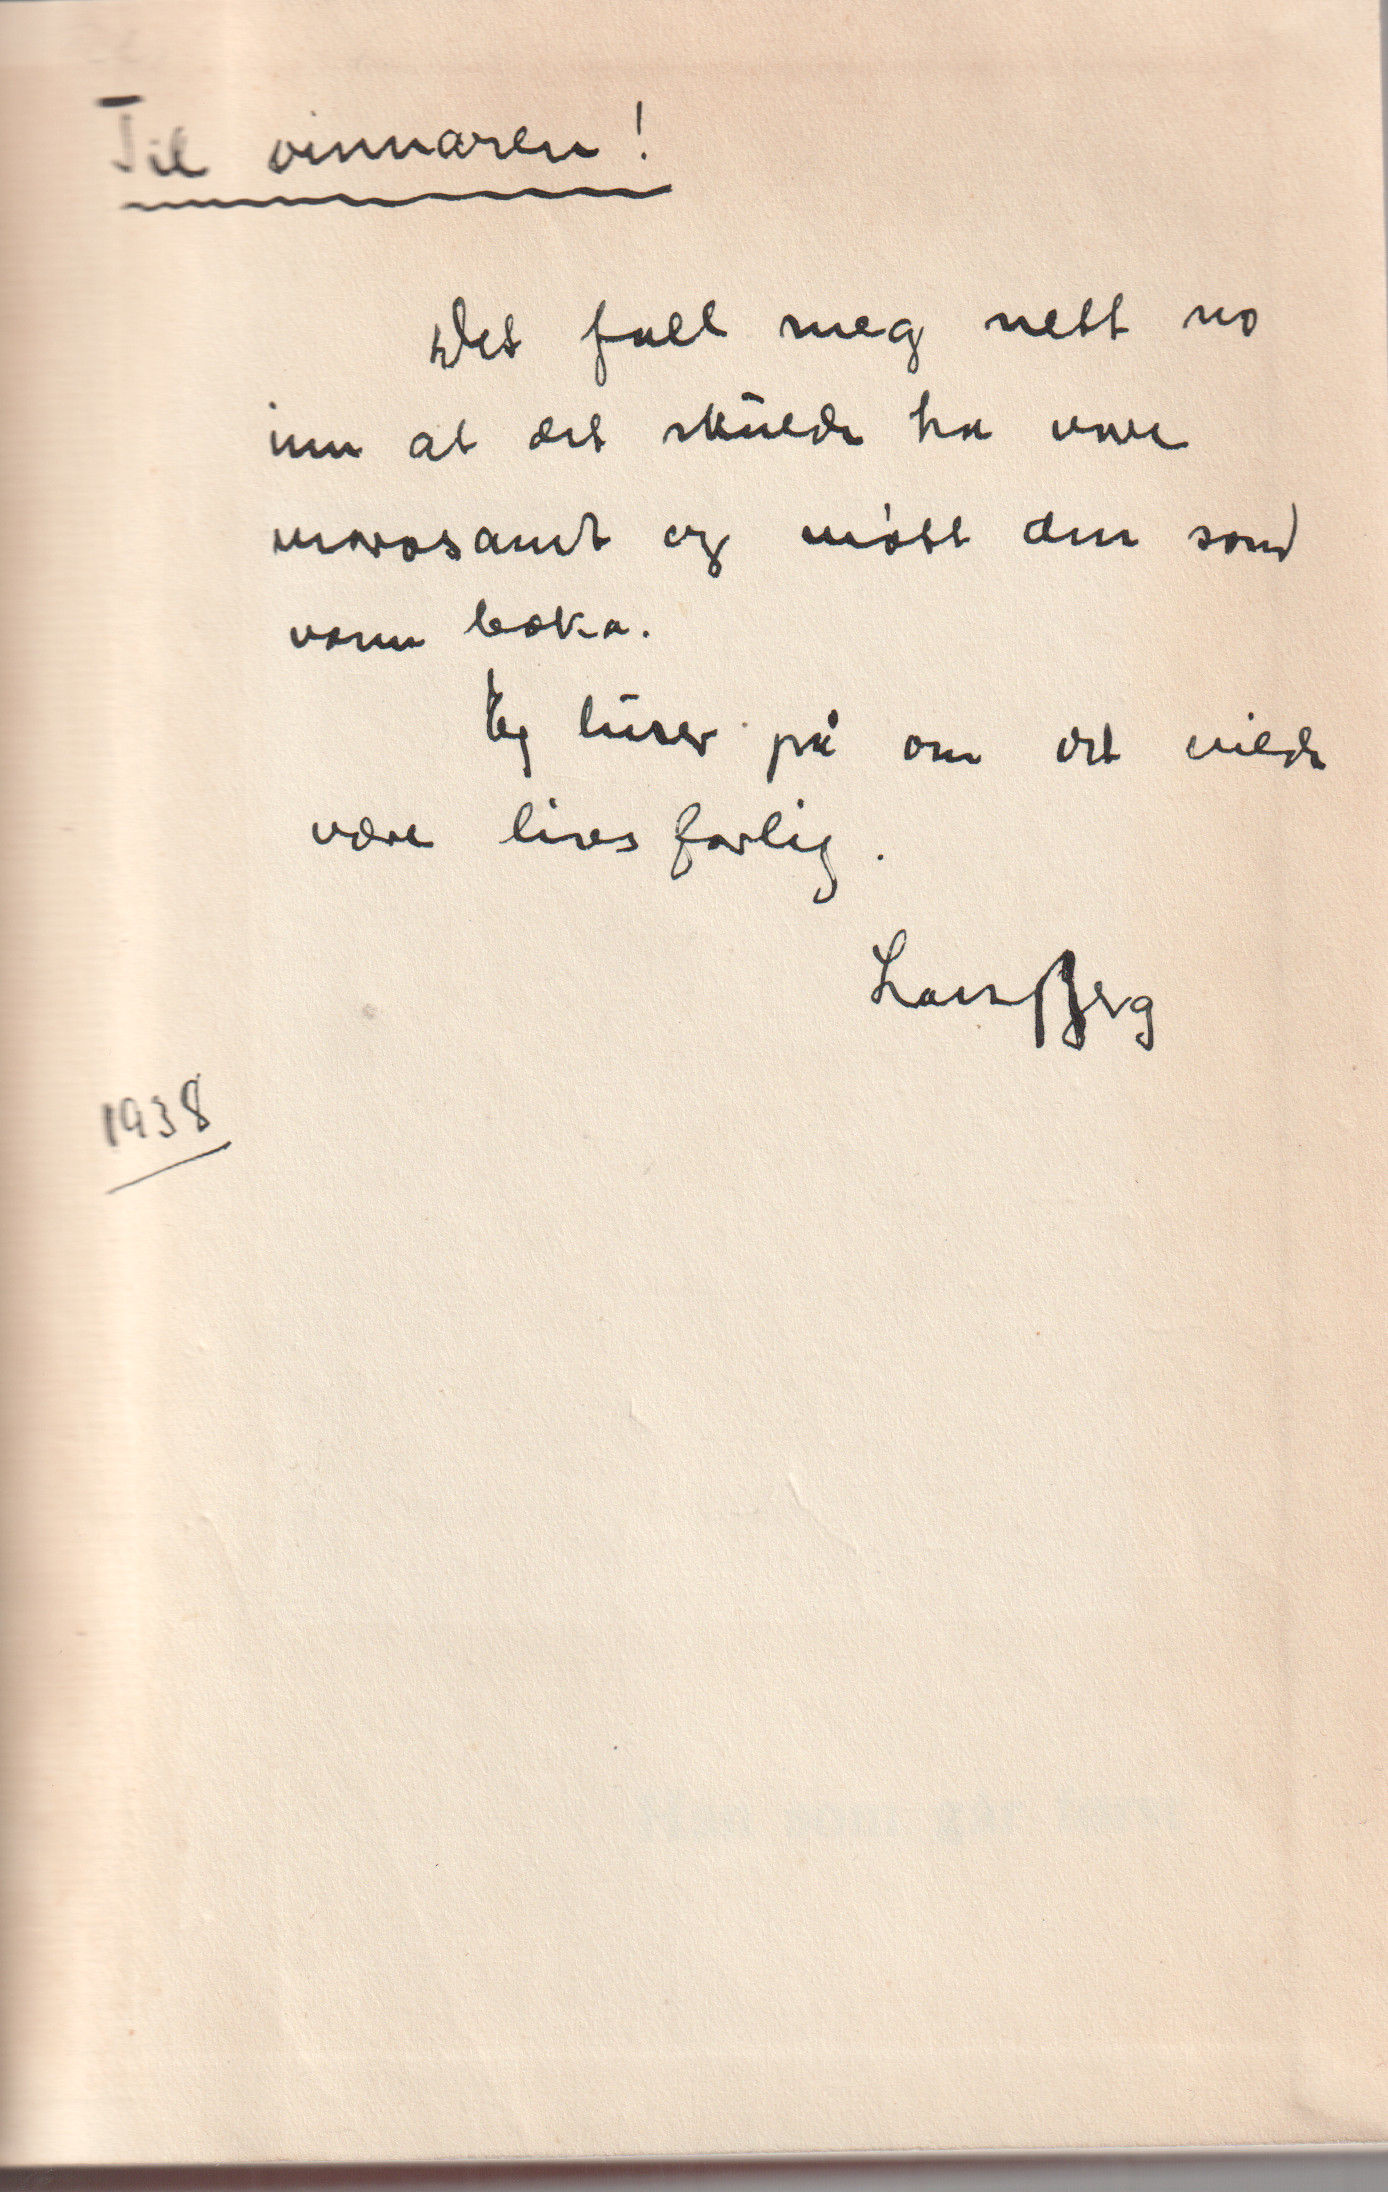 Til vinnaren!
Det fall meg nett no
inn at det skulde ha vore
morosamt og møtt den som
vann boka.
Eg lurer på om det vilde
være livsfarlig.
Lars Berg
1938